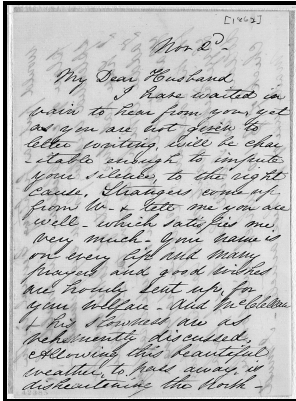 [1862]
Nov 2d-
My Dear Husband
I have waited in
vain to hear from you, yet
as you are not given to
letter writing, will be char
-itable enough to impute
your silence, to the right
cause. Strangers come up
from W- & tell me you are
well- which satisfies me
very much- Your name is
on every lip and many
Prayers and good wishes
are hourly sent up, for
your welfare- and McClellan
& his slowness are as
vehemently discussed.
Allowing this beautiful
weather, to pass away, is
disheartening the North-